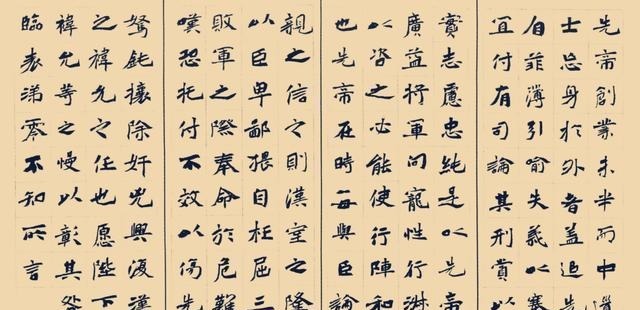 先帝創業未半而中道
士忘身於外者蓋追先
自菲薄引喻失義以塞
宜付有司論其刑賞以
實志慮忠純是以先帝
廣益將軍向寵性行淑
以咨之必能使行陣和
也先帝在時每與臣論
親之信之則漢室之隆
以臣卑鄙猥自枉屈三
敗軍之際奉命於危難
嘆恐托付不效以傷先
駑鈍攘除奸兇興復漢
之禕允之任也愿陛下
禕允等之慢以彰其咎
臨表涕零不知所言